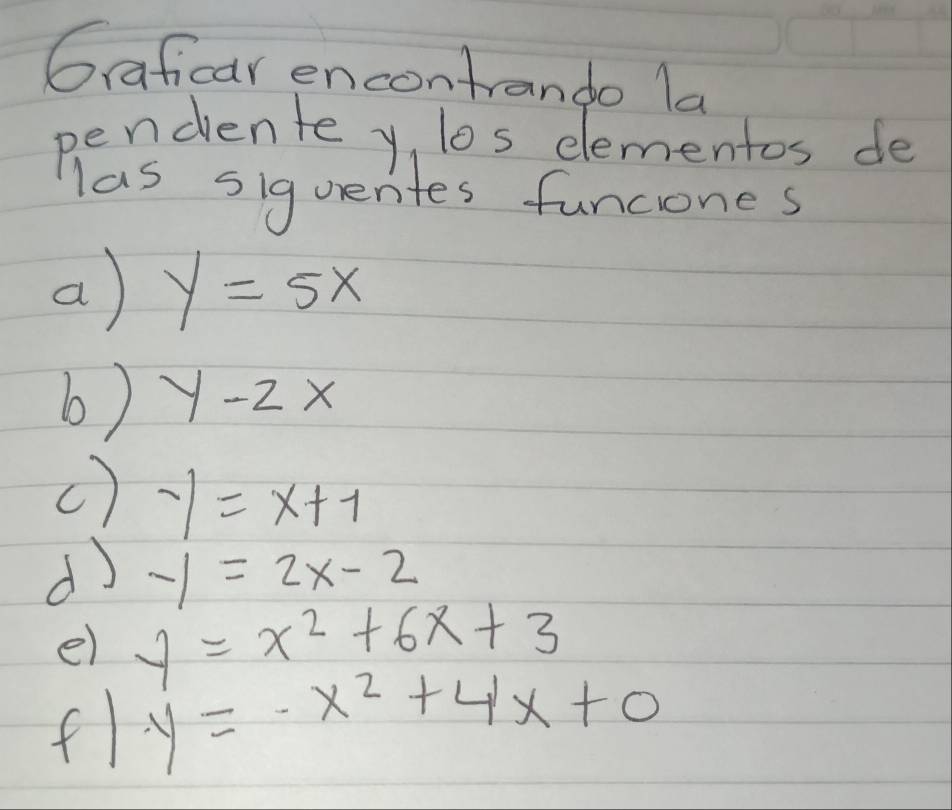 Graficar encontrando la
pendiente y los elementos de
las siguientes funciones
a) y = 5x
b) y - 2x
c) y = x + 1
d) y = 2x - 2
e) y = x² + 6x + 3
f) y = - x² + 4x + 0